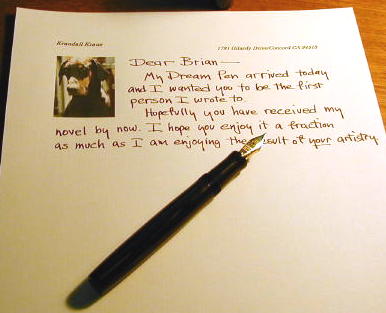 Krandall Kraus
1791 Hilardy Drive/Concord CA 94519
Dear Brian —
My Dream Pen arrived today
and I wanted you to be the first
person I wrote to.
Hopefully you have received my
novel by now. I hope you enjoy it a fraction
as much as I am enjoying the result of your artistry